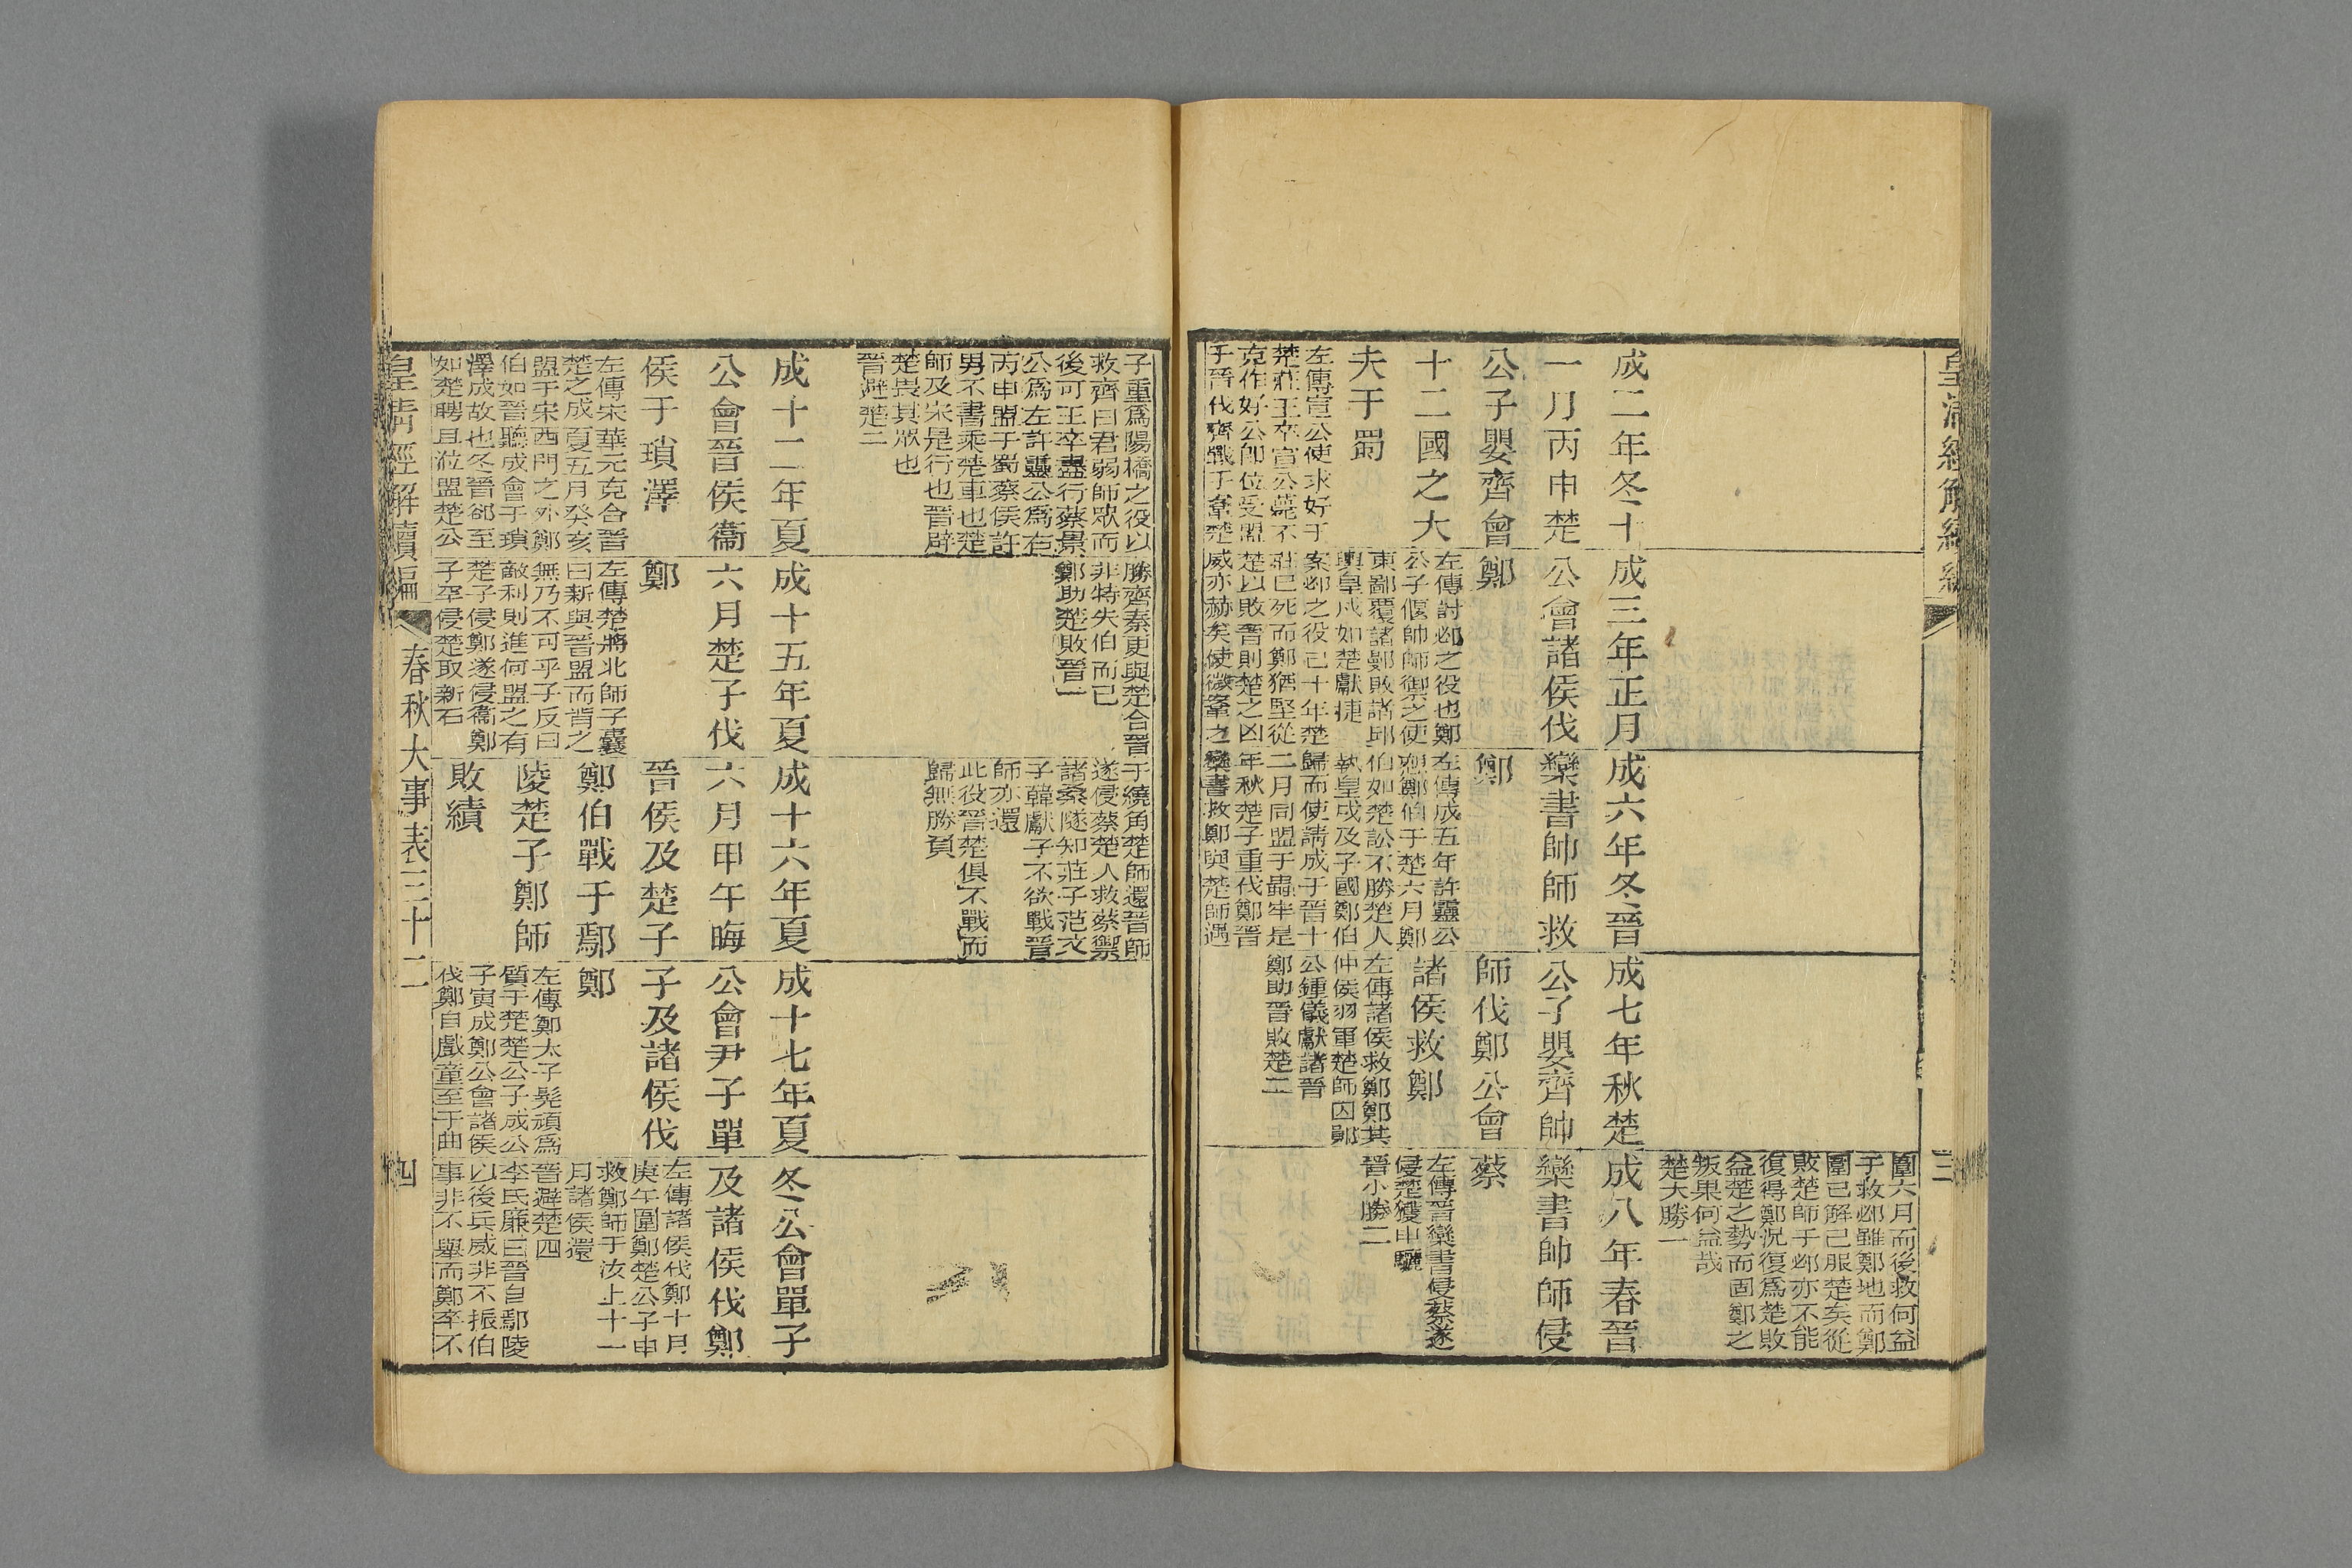 皇清經解續編
三
成二年冬十
一月丙申楚
公子嬰齊會
十二國之大
夫于蜀
左傳宣公使求好于
楚莊王卒宣公薨不
克作好公即位受盟
于晉伐齊戰于鞌楚
成三年正月
公會諸侯伐
鄭
左傳討邲之役也鄭
公子偃帥師禦之使
東鄙覆諸鄤敗諸邱
輿皇戌如楚獻捷
案邲之役已十年楚
莊已死而鄭猶堅從
楚以敗晉則楚之凶
威亦赫矣使微鞌之
成六年冬晉
欒書帥師救
鄭
左傳成五年許靈公
愬鄭伯于楚六月鄭
伯如楚訟不勝楚人
執皇戌及子國鄭伯
歸而使請成于晉十
二月同盟于蟲牢是
年秋楚子重伐鄭晉
欒書救鄭與楚師遇
成七年秋楚
公子嬰齊帥
師伐鄭公會
諸侯救鄭
左傳諸侯救鄭鄭共
仲侯羽軍楚師囚鄖
公鍾儀獻諸晉
鄭助晉敗楚二
圍六月而後救何益
于救邲雖鄭地而鄭
圍已解已服楚矣從
敗楚師于邲亦不能
復得鄭況復爲楚敗
益楚之勢而固鄭之
叛果何益哉
楚大勝一
成八年春晉
欒書帥師侵
蔡
左傳晉欒書侵蔡遂
侵楚獲申驪
晉小勝二
子重爲陽橋之役以
救齊曰君弱師眾而
後可王卒盡行蔡景
公爲左許靈公爲右
丙申盟于蜀蔡侯許
男不書乘楚車也楚
師及宋是行也晉辟
楚畏其眾也
晉避楚二
成十二年夏
公會晉侯衞
侯于瑣澤
左傳宋華元克合晉
楚之成夏五月癸亥
盟于宋西門之外鄭
伯如晉聽成會于瑣
澤成故也冬晉郤至
如楚聘且涖盟楚公
勝齊秦更與楚合晉
非特失伯而已
鄭助楚敗晉一
成十五年夏
六月楚子伐
鄭
左傳楚將北師子囊
曰新與晉盟而背之
無乃不可乎子反曰
敵利則進何盟之有
楚子侵鄭遂侵衞鄭
子罕侵楚取新石
于繞角楚師還晉師
遂侵蔡楚人救蔡禦
諸桑隧知莊子范文
子韓獻子不欲戰晉
師亦還
此役晉楚俱不戰而
歸無勝負
成十六年夏
六月甲午晦
晉侯及楚子
鄭伯戰于鄢
陵楚子鄭師
敗績
成十七年夏
公會尹子單
子及諸侯伐
鄭
左傳鄭太子髡頑爲
質于楚楚公子成公
子寅戍鄭公會諸侯
伐鄭自戲童至于曲
冬公會單子
及諸侯伐鄭
左傳諸侯伐鄭十月
庚午圍鄭楚公子申
救鄭師于汝上十一
月諸侯還
晉避楚四
李氏廉曰晉自鄢陵
以後兵威非不振伯
事非不舉而鄭卒不
皇清經解續編
春秋大事表三十二
四